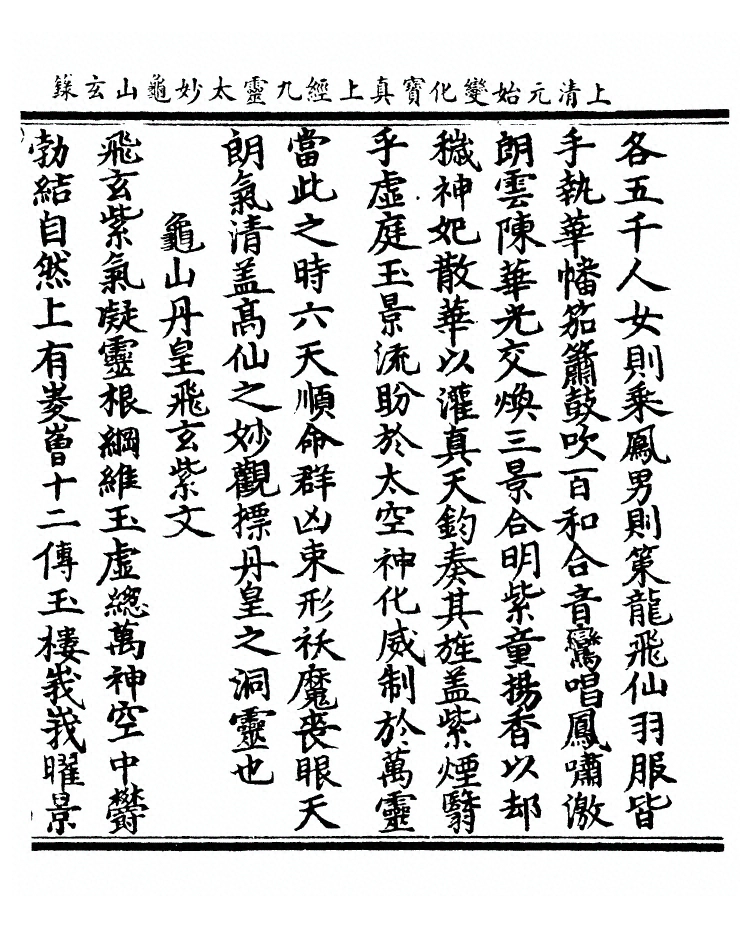 上清元始變化寶真上經九靈太妙龜山玄籙
各五千人女則乘鳳男則策龍飛仙羽服皆
手執華幡笳簫鼓吹百和合音鸞唱鳳嘯激
朗雲陳華光交煥三景合明紫童揚香以却
穢神妃散華以灌真天鈞奏其旌盖紫煙翳
乎虛庭玉景流盼於太空神化威制於萬靈
當此之時六天順命群凶束形祅魔喪眼天
朗氣清盖高仙之妙觀摽丹皇之洞靈也
龜山丹皇飛玄紫文
飛玄紫氣凝靈根綱維玉虛總萬神空中鬱
勃結自然上有夌嶒十二傳玉樓峩峩曜景